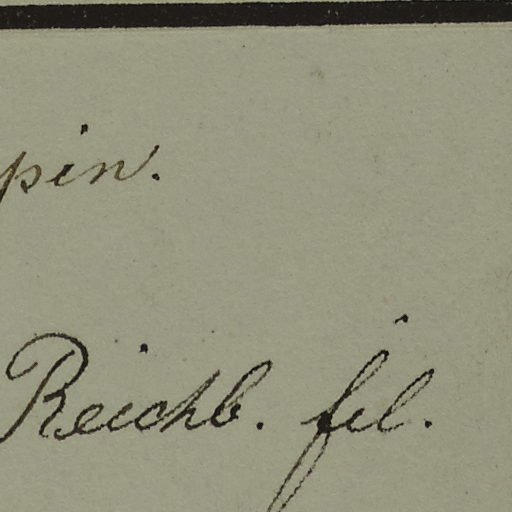 pin.
Reichb. fil.